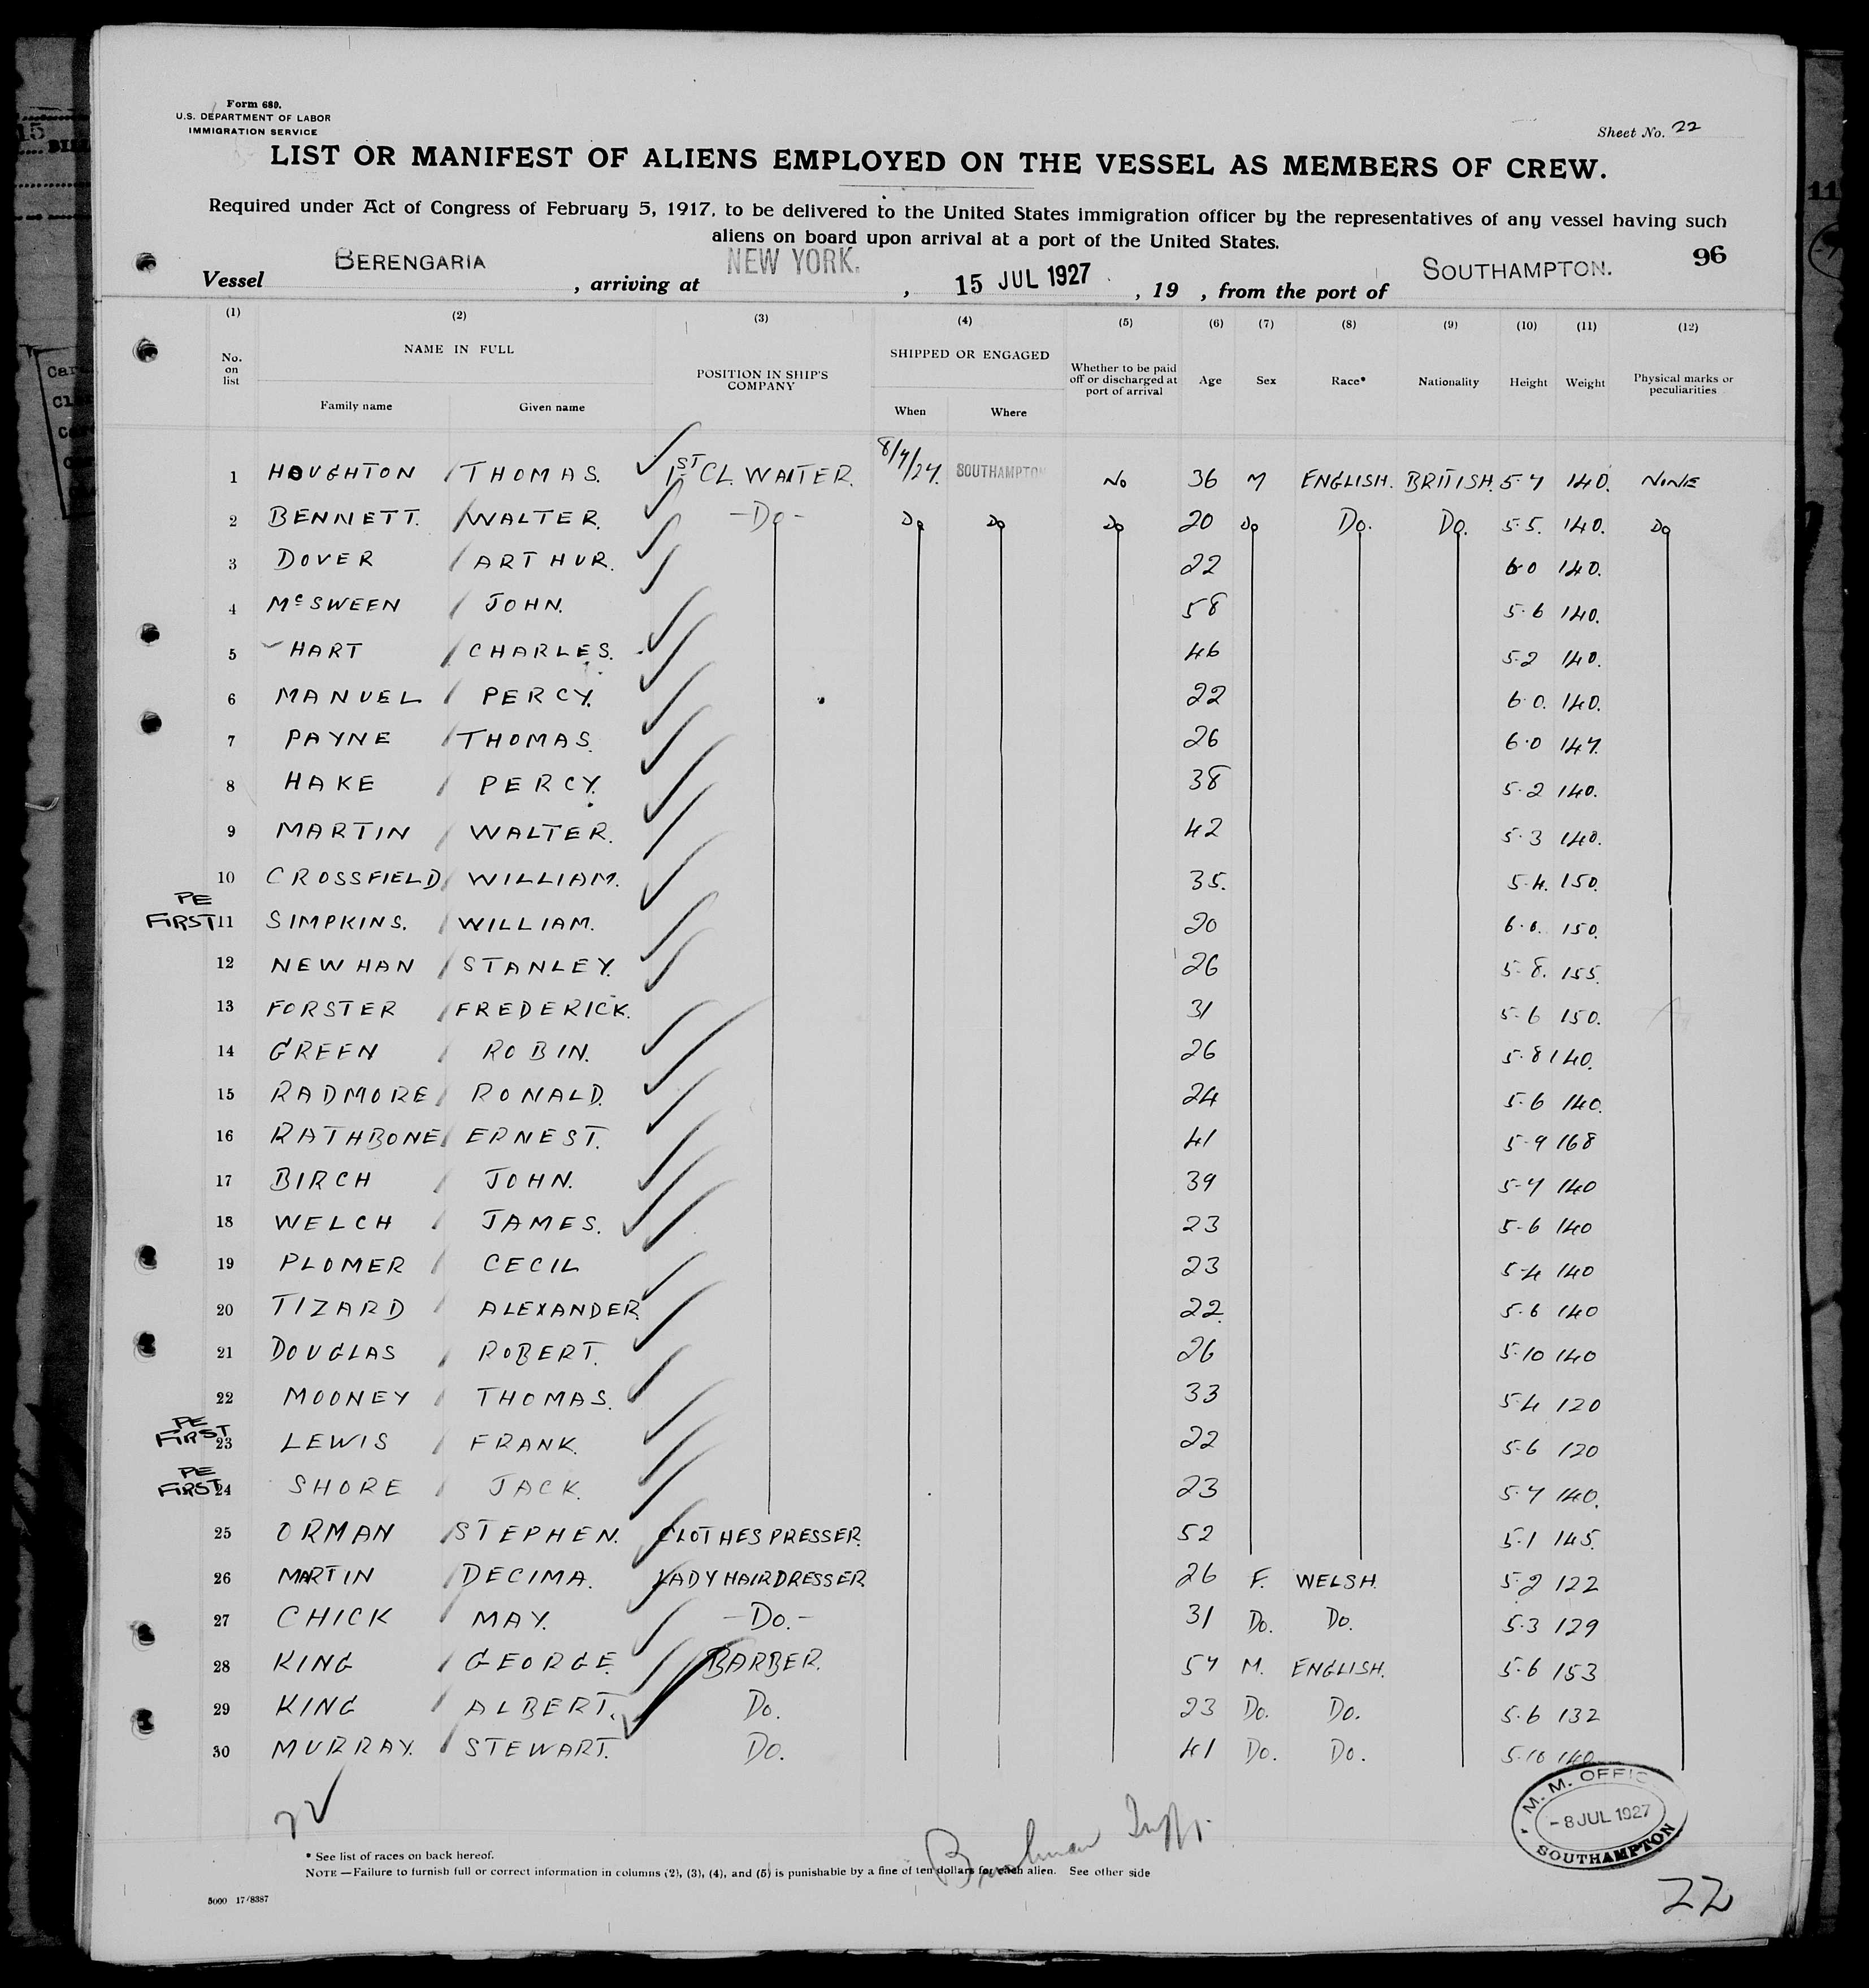 Form 689.
U.S. DEPARTMENT OF LABOR
IMMIGRATION SERVICE
Sheet No. 22
LIST OR MANIFEST OF ALIENS EMPLOYED ON THE VESSEL AS MEMBERS OF CREW.
Required under Act of Congress of February 5, 1917, to be delivered to the United States immigration officer by the representatives of any vessel having such
aliens on board upon arrival at a port of the United States.
96
Vessel BERENGARIA, arriving at NEW YORK., 15 JUL 1927, 19 , from the port of SOUTHAMPTON.
(1) (2) (3) (4) (5) (6) (7) (8) (9) (10) (11) (12)
No. on list NAME IN FULL Family name Given name POSITION IN SHIP'S COMPANY SHIPPED OR ENGAGED When Where Whether to be paid off or discharged at port of arrival Age Sex Race* Nationality Height Weight Physical marks or peculiarities
1 HOUGHTON THOMAS. 1ST CL. WAITER. 8/7/27. SOUTHAMPTON No 36 M ENGLISH. BRITISH. 5-7 140. NONE
2 BENNETT. WALTER. -Do- Do Do Do 20 Do Do. Do. 5.5. 140. Do
3 DOVER ARTHUR. 22 6.0 140.
4 McSWEEN JOHN. 58 5.6 140.
5 HART CHARLES. 46 5.2 140.
6 MANUEL PERCY. 22 6.0. 140.
7 PAYNE THOMAS. 26 6.0 147.
8 HAKE PERCY. 38 5.2 140.
9 MARTIN WALTER. 42 5.3 140.
10 CROSSFIELD WILLIAM. 35. 5.4. 150.
PE FIRST 11 SIMPKINS. WILLIAM. 20 6.0. 150.
12 NEWHAN STANLEY. 26 5-8. 155.
13 FORSTER FREDERICK. 31 5-6 150.
14 GREEN ROBIN. 26 5.8 140.
15 RADMORE RONALD. 24 5-6 140.
16 RATHBONE ERNEST. 41 5-9 168
17 BIRCH JOHN. 39 5-7 140
18 WELCH JAMES. 23 5-6 140
19 PLOMER CECIL 23 5-4 140
20 TIZARD ALEXANDER. 22. 5.6 140
21 DOUGLAS ROBERT. 26 5.10 140
22 MOONEY THOMAS. 33 5.4 120
PE FIRST 23 LEWIS FRANK. 22 5-6 120
PE FIRST 24 SHORE JACK. 23 5.7 140.
25 ORMAN STEPHEN. CLOTHES PRESSER. 52 5.1 145.
26 MARTIN DECIMA. LADY HAIRDRESSER 26 F. WELSH. 5.2 122
27 CHICK MAY. -Do.- 31 Do. Do. 5.3 129
28 KING GEORGE. BARBER. 57 M. ENGLISH. 5.6 153
29 KING ALBERT. Do. 23 Do. Do. 5.6 132
30 MURRAY. STEWART. Do. 41 Do. Do. 5.10 140
M. M. OFFICE
-8 JUL 1927
SOUTHAMPTON
* See list of races on back hereof.
NOTE—Failure to furnish full or correct information in columns (2), (3), (4), and (5) is punishable by a fine of ten dollars for each alien. See other side
5000 17/8387
22